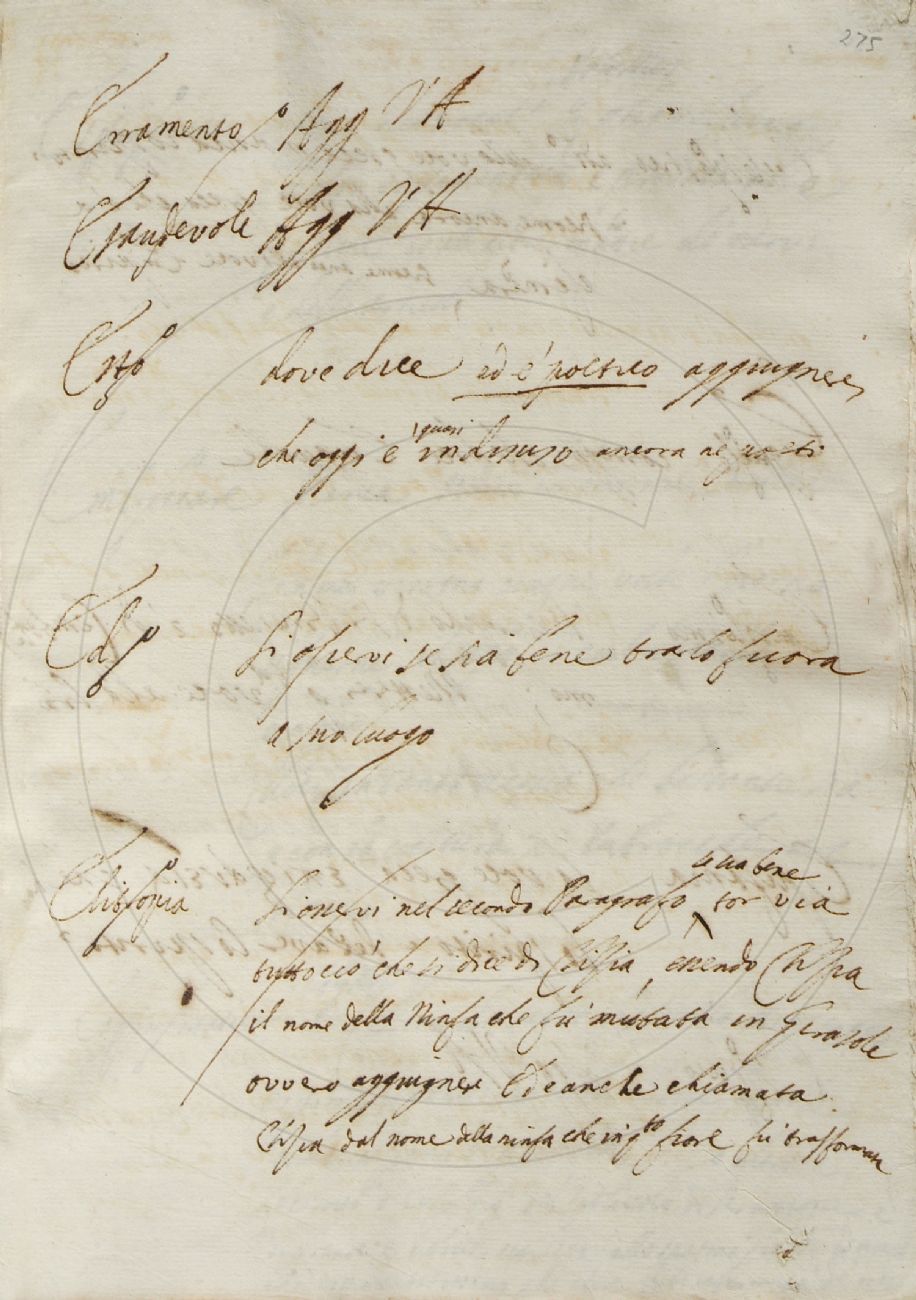 275
Erramento Agg V A
Esaudevole Agg V A
Esto dove dice ed è poetico aggiugnere
che oggi è quasi in disuso ancora ne Poeti
Si osservi se sia bene trarlo fuora
a suo luogo
Elitropia Si osservi nel secondo Paragrafo se va bene tor via
tutto ciò che si dice di Clizia, essendo Clizia
il nome della Ninfa che fù mutata in Girasole
ovvero aggiugnere Ed è anche chiamata
Clizia dal nome della ninfa che in qto fiore fù trasformata